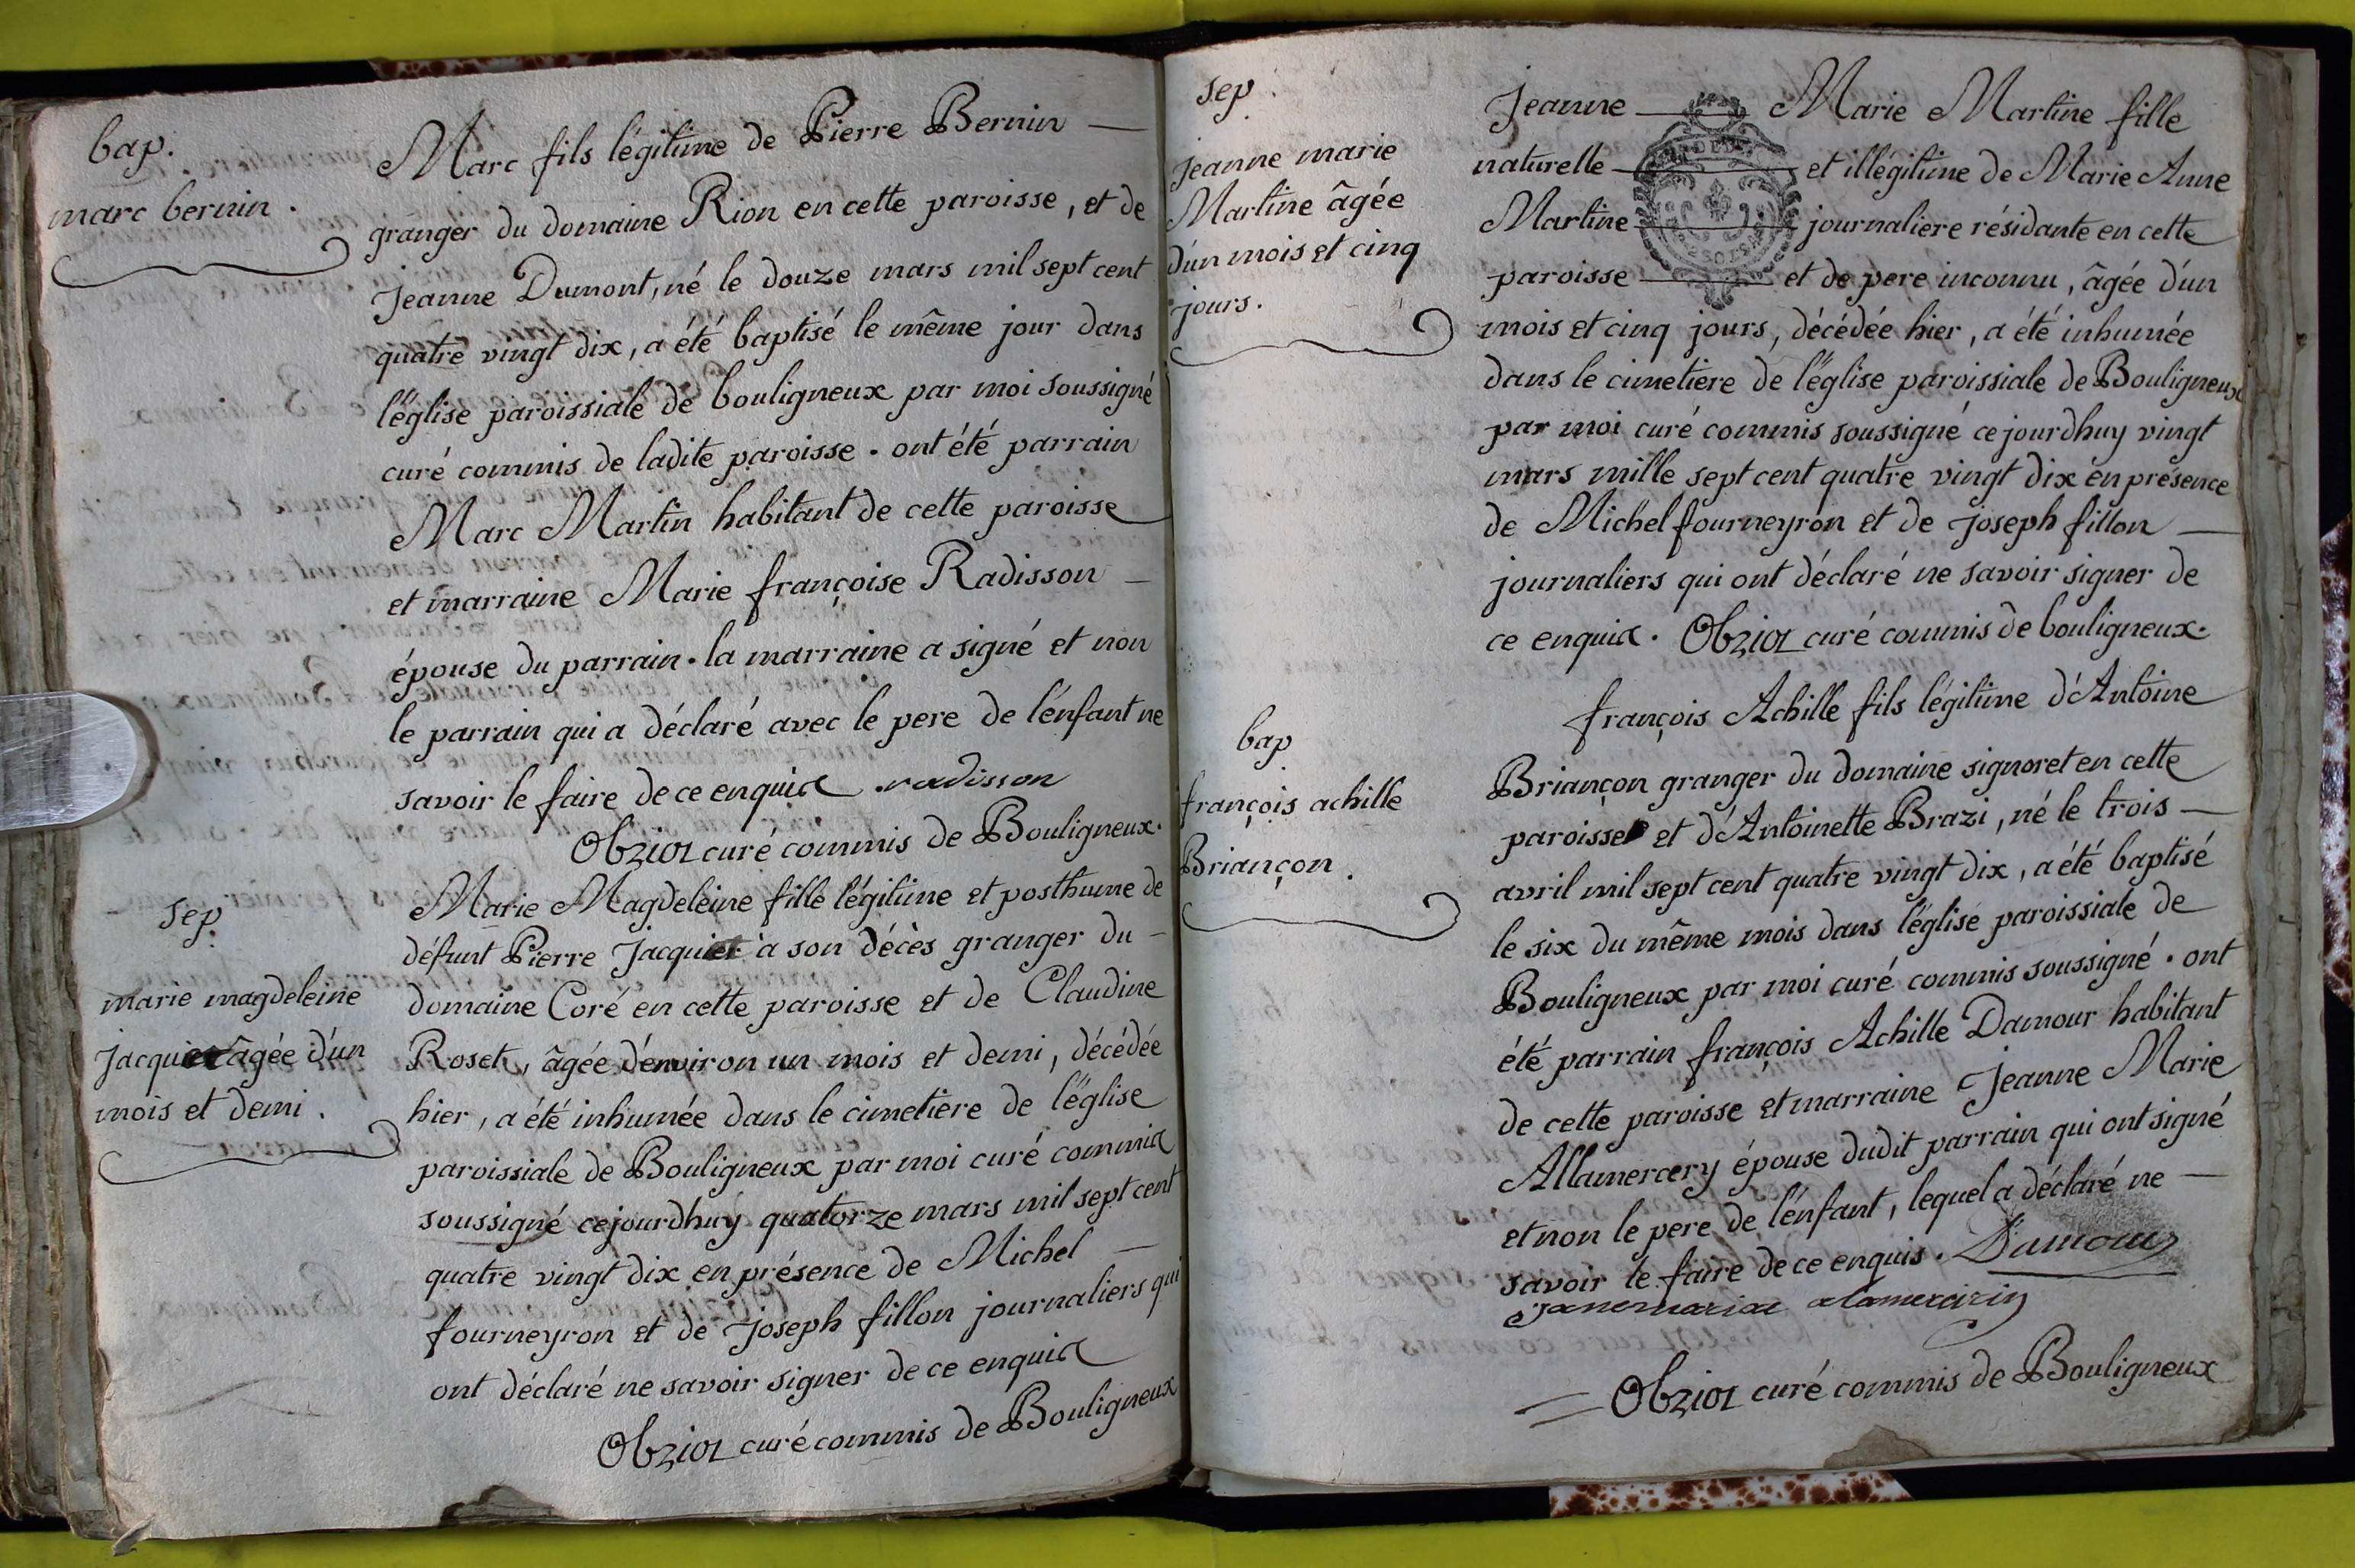 bap.
marc bernin.
Marc fils légitime de Pierre Bernin —
granger du domaine Rion en cette paroisse, et de
Jeanne Dumont, né le douze mars mil sept cent
quatre vingt dix, a été baptisé le même jour dans
l'église paroissiale de bouligneux par moi soussigné
curé commis de ladite paroisse. ont été parrain
Marc Martin habitant de cette paroisse
et marraine Marie françoise Radisson —
épouse du parrain. la marraine a signé et non
le parrain qui a déclaré avec le pere de l'enfant ne
savoir le faire de ce enquis . radisson
curé commis de Bouligneux.
sep.
marie magdeleine
jacquier âgée d'un
mois et demi.
Marie Magdeleine fille légitime et posthume de
défunt Pierre Jacquier à son décès granger du —
domaine Coré en cette paroisse et de Claudine
Roset, âgée d'environ un mois et demi, décédée
hier, a été inhumée dans le cimetiere de l'église
paroissiale de Bouligneux par moi curé commis
soussigné cejourdhuy quatorze mars mil sept cent
quatre vingt dix en présence de Michel —
fourneyron et de joseph fillon journaliers qui
ont déclaré ne savoir signer de ce enquis
curé commis de Bouligneux
sep.
jeanne marie
Martine âgée
d'un mois et cinq
jours.
Jeanne — Marie Martine fille
naturelle — et illégitime de Marie Anne
Martine — journaliere résidante en cette
paroisse — et de pere inconnu, âgée d'un
mois et cinq jours, décédée hier, a été inhumée
dans le cimetiere de l'église paroissiale de Bouligneux
par moi curé commis soussigné cejourdhuy vingt
mars mille sept cent quatre vingt dix en présence
de Michel fourneyron et de joseph fillon —
journaliers qui ont déclaré ne savoir signer de
ce enquis. curé commis de bouligneux.
bap
françois achille
Briançon.
françois Achille fils légitime d'Antoine
Briançon granger du domaine signoret en cette
paroisse et d'Antoinette Brazi, né le trois —
avril mil sept cent quatre vingt dix, a été baptisé
le six du même mois dans l'église paroissiale de
Bouligneux par moi curé commis soussigné. ont
été parrain françois Achille Damour habitant
de cette paroisse et marraine Jeanne Marie
Allamercery épouse dudit parrain qui ont signé
et non le pere de l'enfant, lequel a déclaré ne —
savoir le faire de ce enquis. Damour
curé commis de Bouligneux